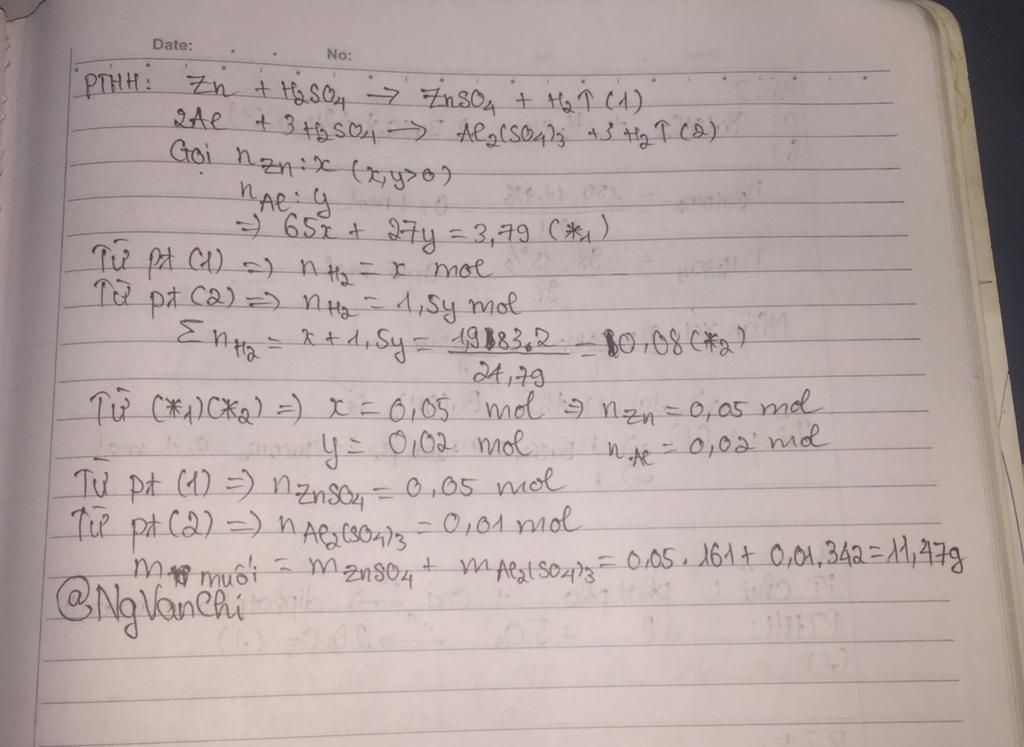 Date: . . No:
PTHH: Zn + H2SO4 → ZnSO4 + H2↑ (1)
2Al + 3H2SO4 → Al2(SO4)3 + 3H2↑ (2)
Gọi nZn: x (x,y>0)
nAl: y
=> 65x + 27y = 3,79 (*1)
Từ pt (1) => nH2 = x mol
Từ pt (2) => nH2 = 1,5y mol
Σ nH2 = x + 1,5y = 1,9832/24,79 = 0,08 (*2)
Từ (*1)(*2) => x = 0,05 mol => nZn = 0,05 mol
y = 0,02 mol nAl = 0,02 mol
Từ pt (1) => nZnSO4 = 0,05 mol
Từ pt (2) => nAl2(SO4)3 = 0,01 mol
m muối = mZnSO4 + mAl2(SO4)3 = 0,05.161 + 0,01.342 = 11,47g
@NgVanChi